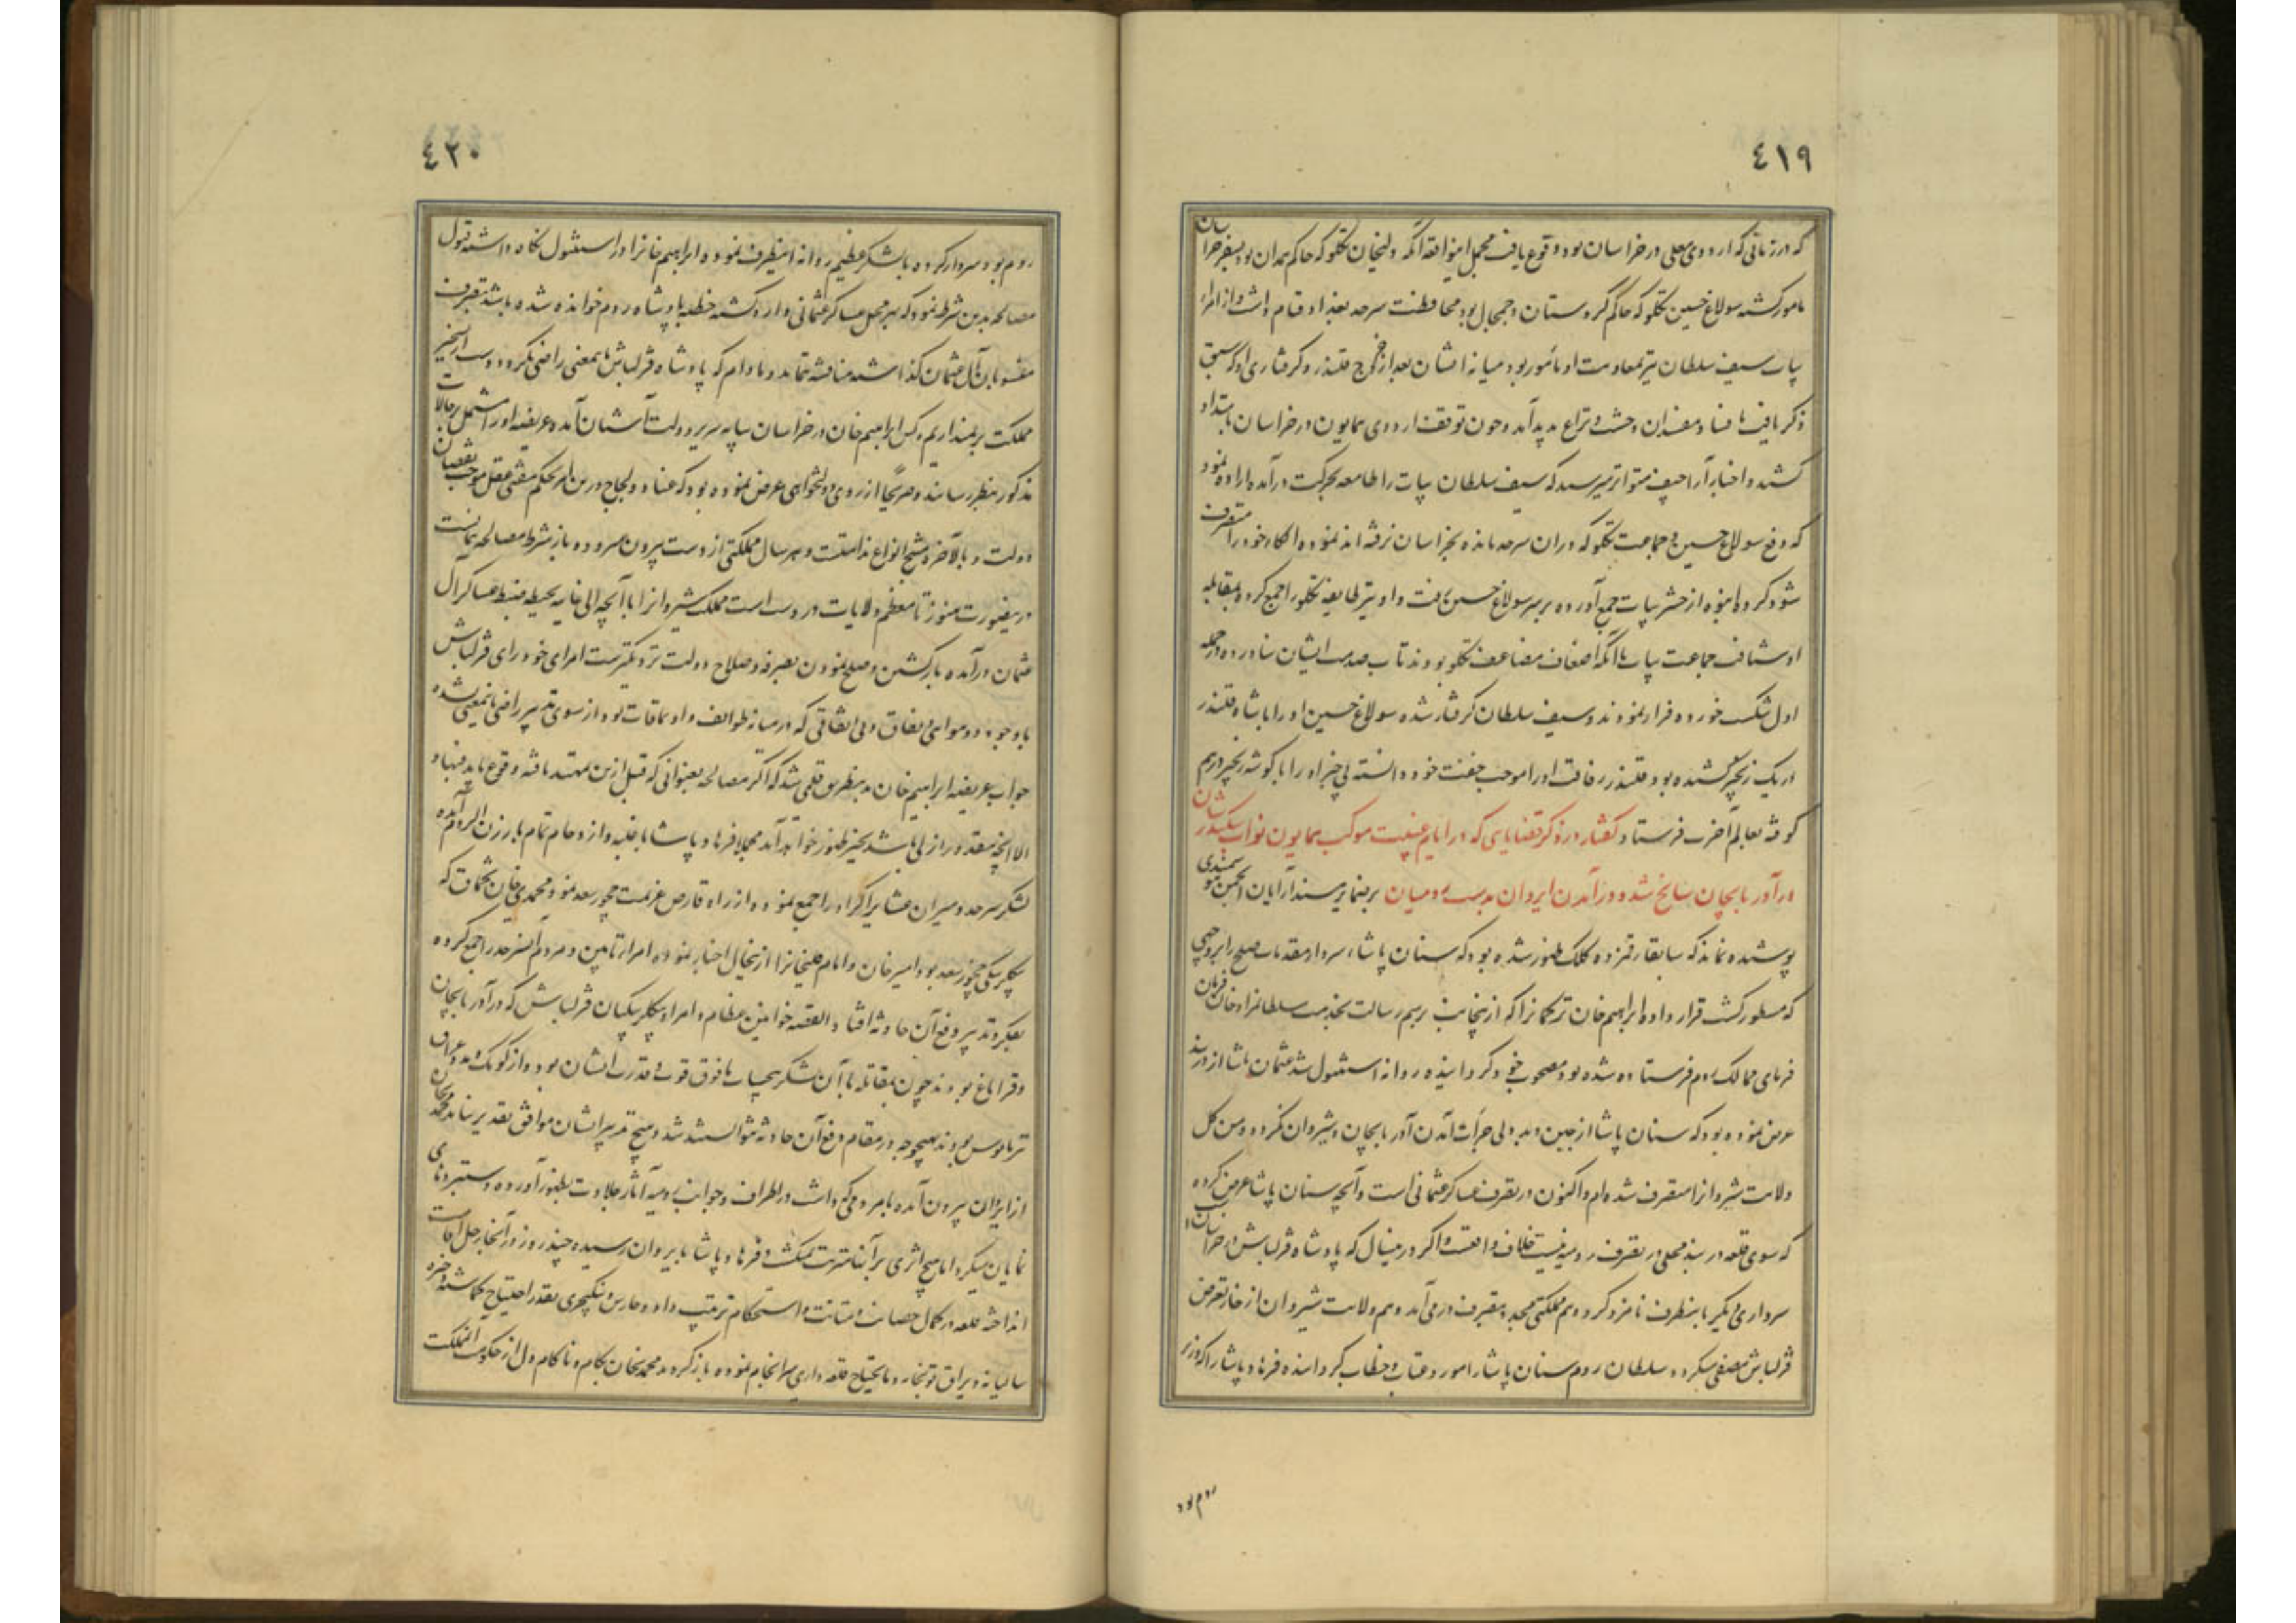 ٤١٩
که در زمانی که اردوی معلی در خراسان بود وقوع یافت مجمل اینواقعه آنکه ولیخان تکلو که حاکم همدان بود بسفر خراسان
مامور گشته سولاغ حسین تکلو که حاکم کردستان و جمجال بود محافظت سرحد بغداد قیام داشت و از امراء
بیات سیف سلطان نیز بمعاونت او مأمور بود میانه ایشان بعد از خروج قلندر و گرفتاری او که سبق
ذکر یافت بافساد مفسدان وحشت و نزاع پدید آمد و چون توقف اردوی همایون در خراسان بامتداد
کشید و اخبار اراجیف متواتر میرسید که سیف سلطان بیات را طامعه بحرکت درآمده اراده نمود
که دفع سولاغ حسین و جماعت تکلو که در ان سرحد مانده بخراسان نرفته اند نموده الکاء خود را متصرف
شود گروه انبوه از حشر بیات جمع آورده بر سر سولاغ حسین رفت و او نیز طایفه تکلو را جمع کرده بمقابله
او شتافت جماعت بیات باآنکه اضعاف مضاعف تکلو بودند تاب صدمت ایشان نیاورده در حمله
اول شکست خورده فرار نمودند و سیف سلطان گرفتار شده سولاغ حسین او را با شاه قلندر
در یک زنجیر کشیده بود قلندر رفاقت او را موجب خفت خود دانسته بی خبر او را با گوشه زنجیر درهم
کوفته بعالم آخرت فرستاد گفتار در ذکر قضایای که در ایام غیبت موکب همایون نواب سکندرشان
در آذربایجان سانح شد و درآمدن ایروان بدست رومیان بر ضمایر مسند آرایان انجمن
پوشیده نماند که سابقا رقمزده کلک ظهور شده بود که سنان پاشاء سردار مقدمات صلح را بروجهی
که مسطور گشت قرار داده ابراهیم خان ترکمانرا که از اینجانب برسم رسالت بخدمت سلطانمراد خان فرمان
فرمای ممالک روم فرستاده شده بود مصحوب خود گردانیده روانه استنبول شد عثمان پاشا از دربند
عرض نموده بود که سنان پاشا از جبن و بددلی جرأت آمدن آذربایجان و شیروان نکرده و من کل
ولایت شیروانرا متصرف شده ام و اکنون در تصرف عساکر عثمانی است و آنچه سنان پاشا عرض کرده
که سوی قلعه دربند محلی در تصرف رومیه نیست خلاف واقعست و اگر درینسال که پادشاه قزلباش در خراسان
سرداری دیگر باینطرف نامزد گردد هم مملکتی مجدد بتصرف درمی آید و هم ولایت شیروان از خار تعرض
قزلباش مصفی میگردد سلطان روم سنان پاشا را مورد عتاب و خطاب گردانیده فرهاد پاشا را که وزیر
روم بود
٤٢٠
روم بود سردار کرده با لشکر عظیم روانه اینطرف نموده ابراهیم خانرا در استنبول نگاه داشته قبول
مصالحه بدین شرط نمود که بهر محل عساکر عثمانی وارد گشته خطبه بپادشاه روم خوانده شده باشد بتصرف
منسوبان آل عثمان گذاشته مناقشه ننمایند و مادام که پادشاه قزلباش باینمعنی راضی نگردد دست از تسخیر
مملکت برنمیداریم و کس ابراهیم خان در خراسان بپایه سریر دولت آشیان آمده عریضه او را مشتمل بر حالات
مذکور بنظر رسانید و صریحا از روی دولتخواهی عرض نموده بود که عناد و لجاج درین امر بحکم مفتی عقل موجب نقصان
دولت و بالآخره منتج انواع ندامتست و هر سال مملکتی از دست بیرون میرود و باز بشرط مصالحه همانست
درینصورت هنوز تا معظم ولایات در دست است ملک شیروانرا باآنچه الی غایه بحیطه ضبط عساکر آل
عثمان درآمده باز گشتن و صلح نمودن بصرفه و صلاح دولت نزدیکترست امرای خود رای قزلباش
با وجود دو هوایی و نفاق و بی اتفاقی که در میانه طوایف و اویماقات بود از سوی تدبیر راضی باینمعنی نشده
جواب عریضه ابراهیم خان بدینطریق قلمی شد که اگر مصالحه بعنوانی که قبل ازین تمهید یافته وقوع یابد فبها و
الا آنچه مقدور ازلی باشد بحیز ظهور خواهد آمد مجملا فرهاد پاشا با غلبه و ازدحام تمام بارزن الروم آمده
لشکر سرحد و میران عشایر اکراد را جمع نموده از راه قارص عزیمت چخور سعد نمود محمدی خان تخماق که
بیگلربیگی چخور سعد بود امیر خان و امام قلیخانرا ازینحال اخبار نموده امراء تابین و مردم آنسرحد را جمع کرده
بفکر و تدبیر دفع آن حادثه افتاد القصه خوانین عظام و امراء و بیگلربیگیان قزلباش که در آذربایجان
و قراباغ بودند چون مقاتله با آن لشکر بیحساب مافوق قوت و قدرت ایشان بود و از کومک و مدد عراق
نیز مایوس بودند بهیچوجه در مقام دفع آن حادثه نتوانستند شد و هیچ تدبیر ایشان موافق تقدیر نیامد محمدیخان
از ایروان بیرون آمده بامردمی که داشت در اطراف و جوانب رومیه آثار جلادت بظهور آورده دستبردهای
نمایان میکرد اما هیچ اثری بر آنها مترتب نمیگشت و فرهاد پاشا بایروان رسیده چند روز در آنجا رحل اقامت
انداخته قلعه در کمال حصانت و متانت و استحکام ترتیب داد و حارس و ینکچری بقدر احتیاج گماشته و ذخیره
سالیانه و یراق توپخانه و مایحتاج قلعه داری سرانجام نموده بازگردید محمدیخان بکام و ناکام دل از حکومت آنمملکت